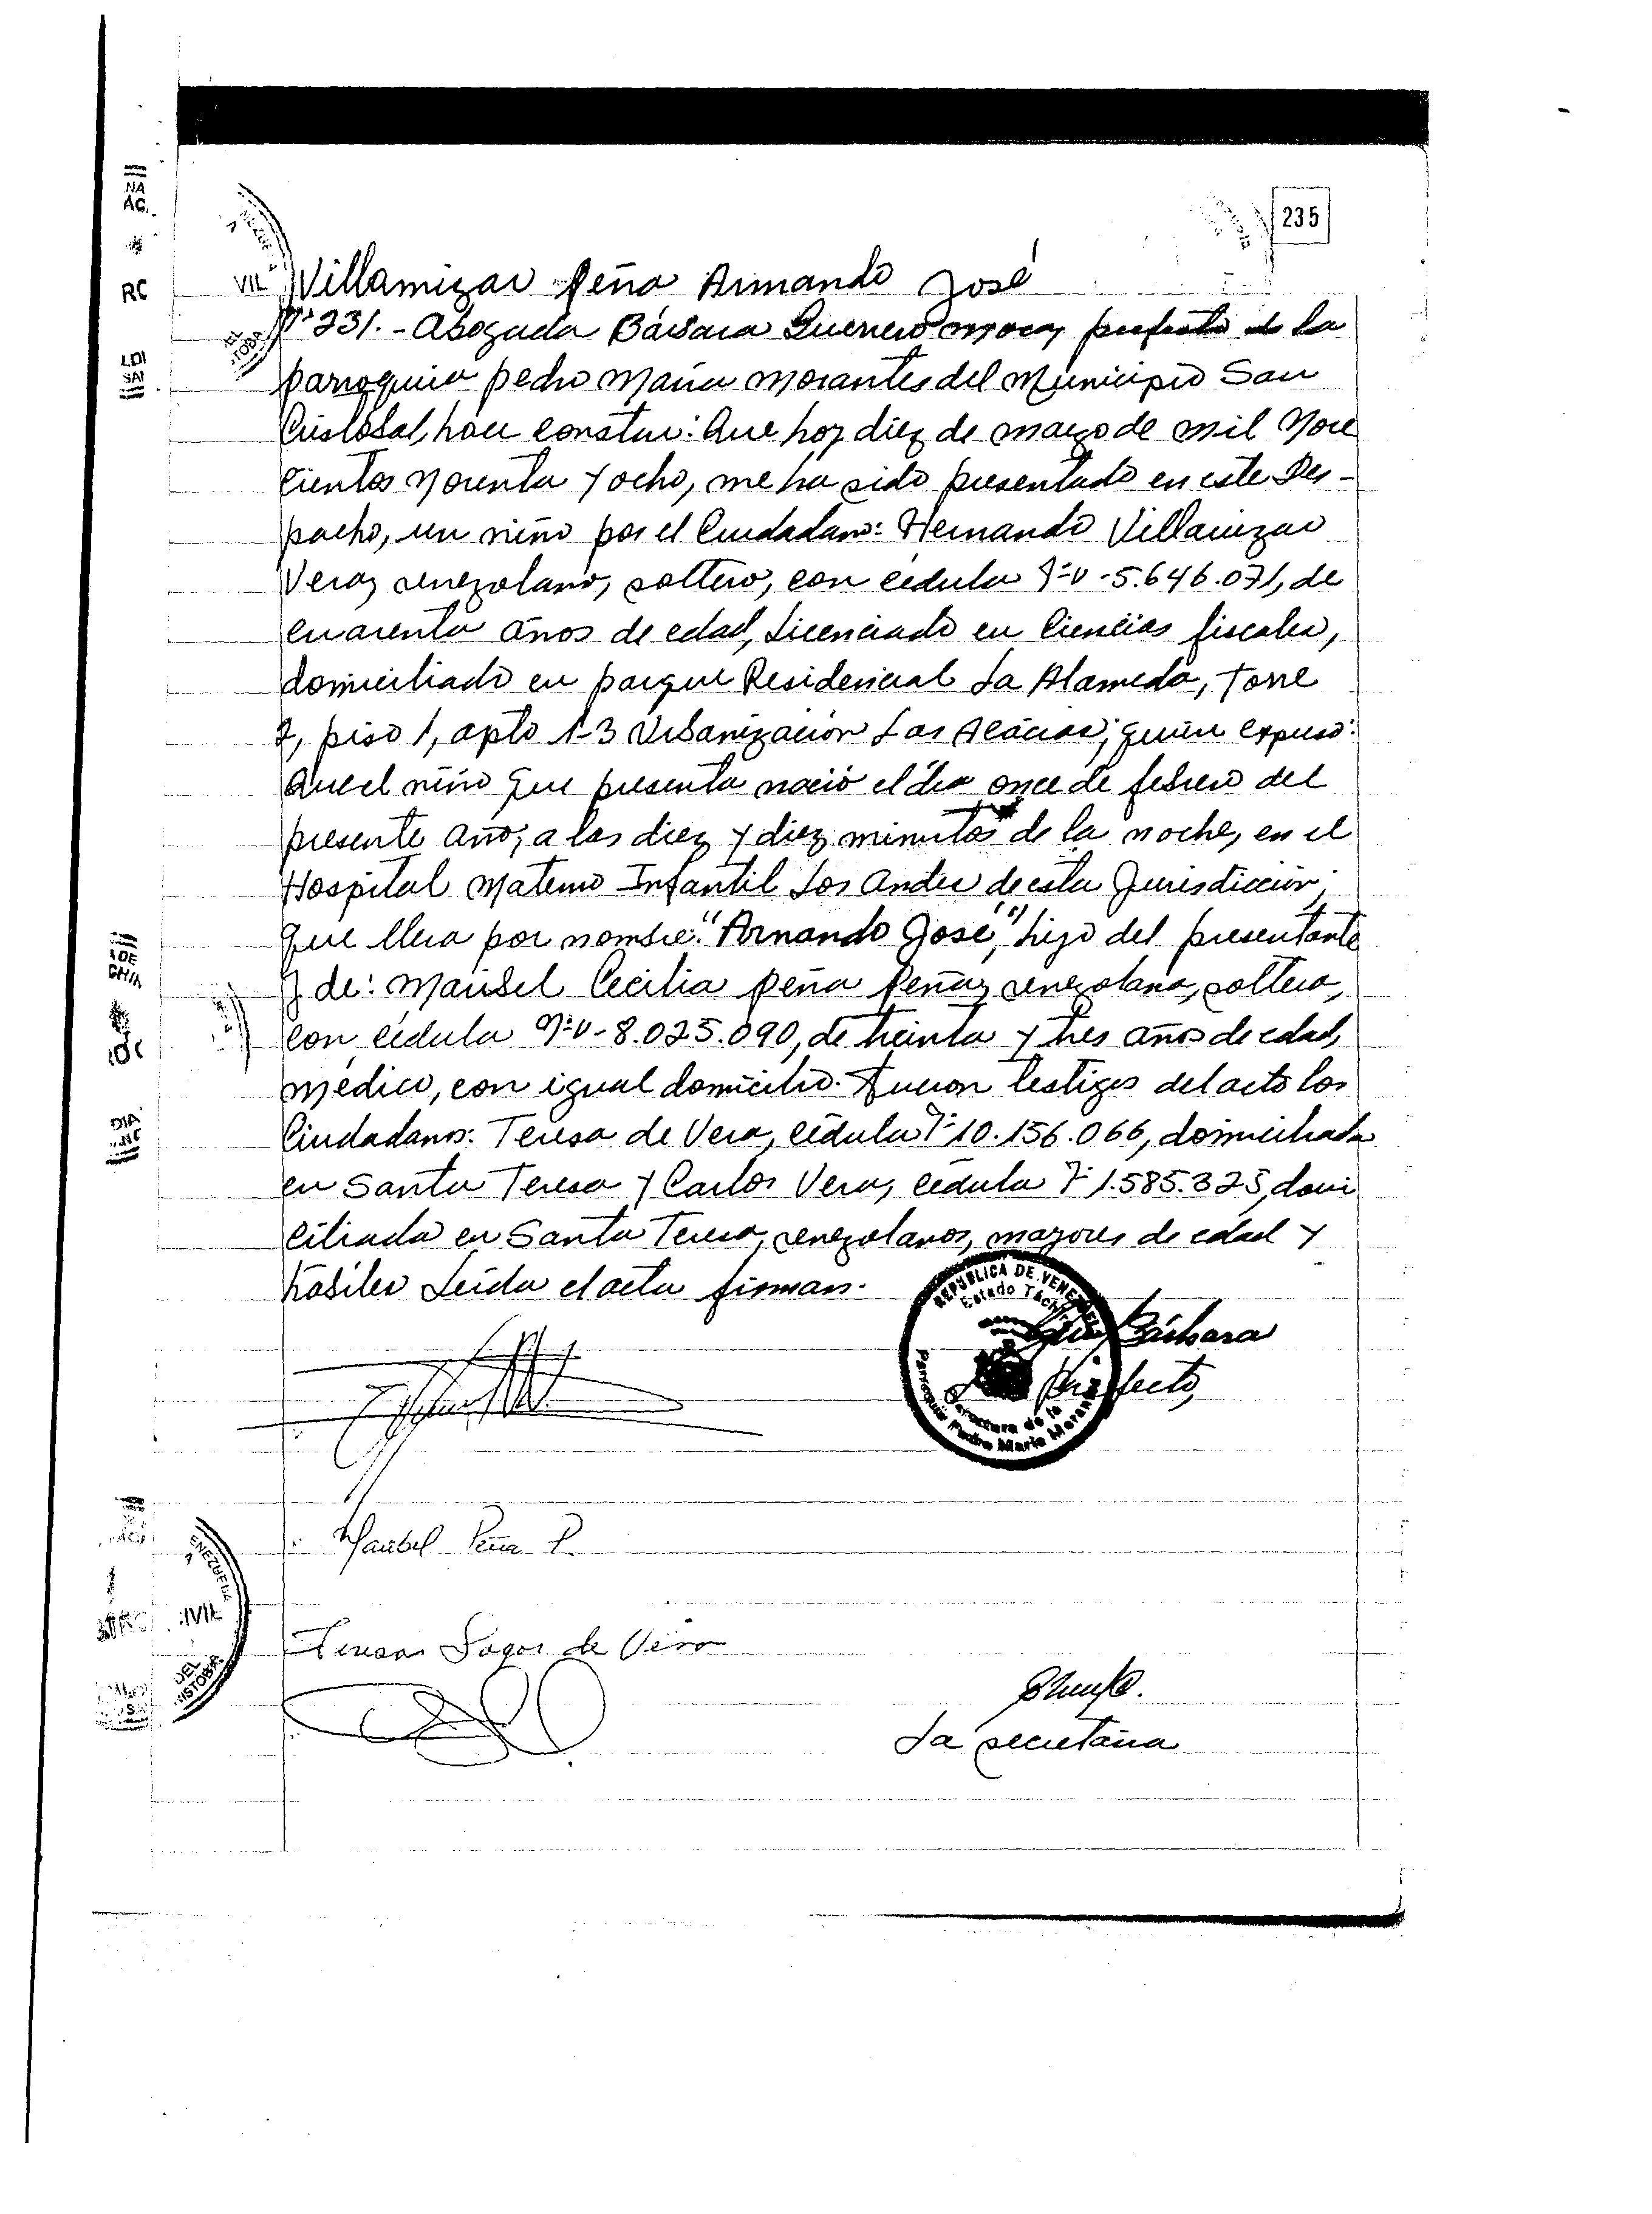 235
Villamizar Peña Armando José
Nº 231.- Abogada Bárbara Guerrero Mora, prefecto de la
parroquia Pedro María Morantes del Municipio San
Cristóbal, hace constar: Que hoy diez de marzo de mil nove
cientos noventa y ocho, me ha sido presentado en este Des-
pacho, un niño por el Ciudadano: Hernando Villamizar
Vera, venezolano, soltero, con cédula Nº V-5.646.071, de
cuarenta años de edad, Licenciado en Ciencias fiscales,
domiciliado en parque Residencial La Alameda, Torre
2, piso 1, apto 1-3 Urbanización Las Acacias; quien expuso:
Que el niño que presenta nació el día once de febrero del
presente año, a las diez y diez minutos de la noche, en el
Hospital Materno Infantil Los Andes de esta Jurisdicción;
que lleva por nombre: "Armando José," hijo del presentante
y de: Maribel Cecilia Peña Peña, venezolana, soltera,
con cédula Nº V-8.025.090, de treinta y tres años de edad,
médico, con igual domicilio. Fueron testigos del acto los
Ciudadanos: Teresa de Vera, cédula Nº 10.156.066, domiciliada
en Santa Teresa y Carlos Vera, cédula Nº 1.585.325, domi
ciliada en Santa Teresa, venezolanos, mayores de edad y
hábiles Leída el acta firman.
REPUBLICA DE VENEZUELA
Estado Táchira
Prefectura de la
Parroquia Pedro María Morantes
Bárbara
La Prefecto,
Maribel Peña P.
Teresa de Vera
La secretaria